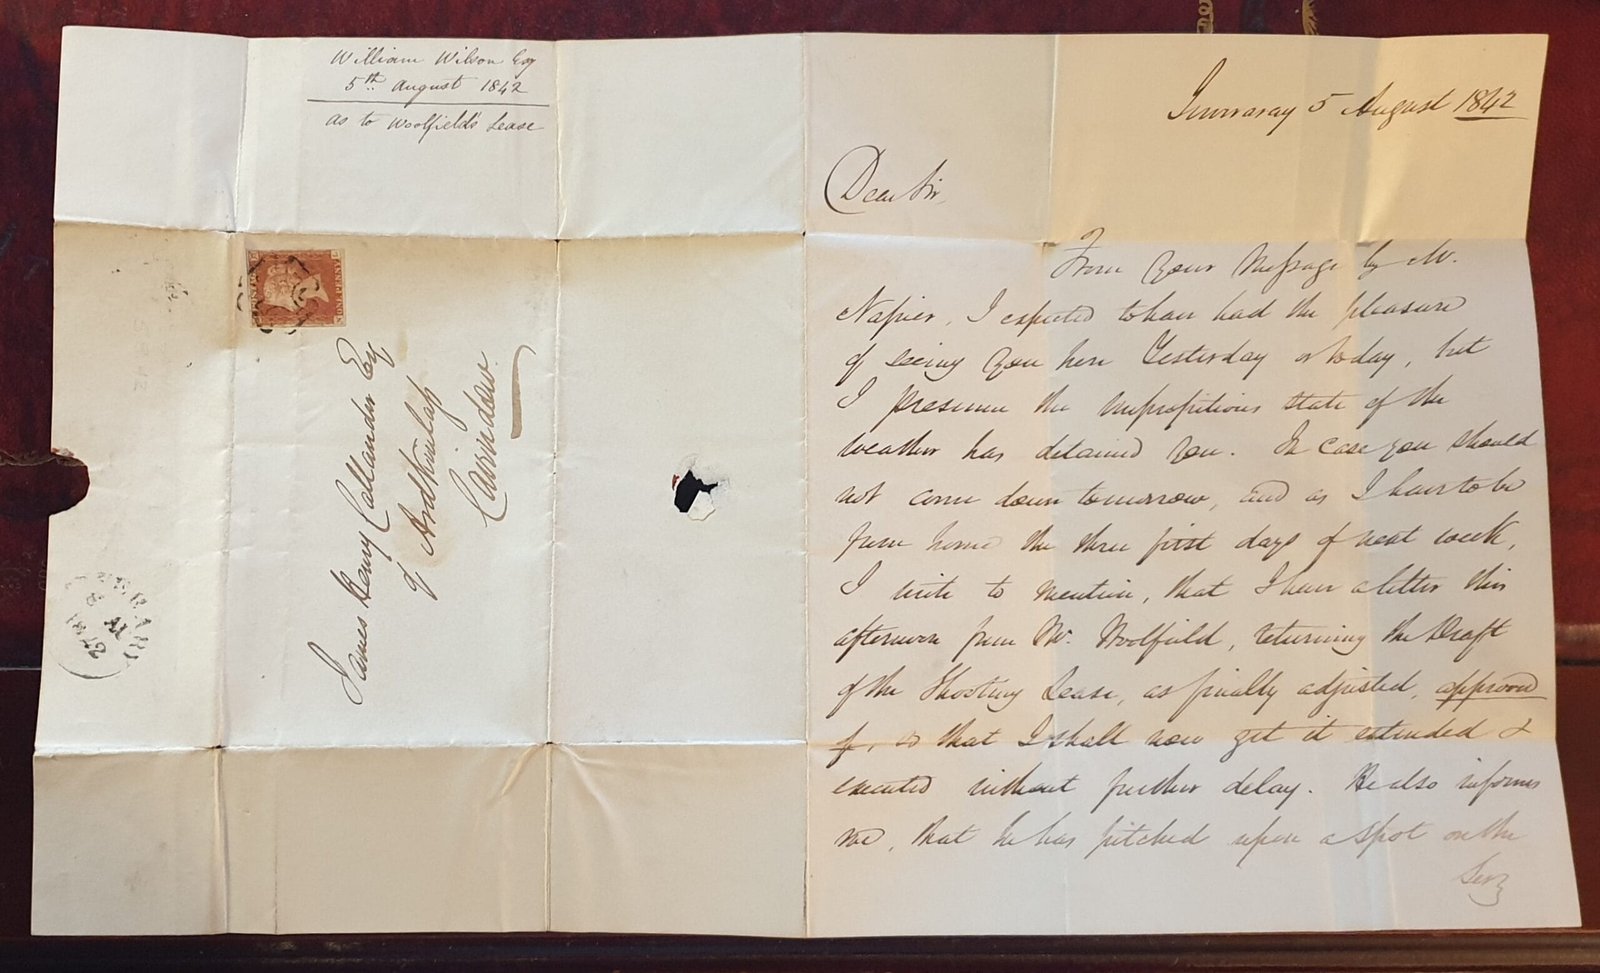 William Wilson Esq
5th August 1842
as to Woolfield's Lease
ONE PENNY
James Henry Callander Esq
of Ardkinlass
Cairndow.
Inveraray 5 August 1842
Dear Sir,
From your Message by Mr.
Napier, I expected to have had the pleasure
of seeing you here Yesterday or today, but
I presume the unpropitious state of the
weather has detained you. In case you should
not come down tomorrow, and as I have to be
from home the three first days of next week,
I write to mention, that I have a letter this
afternoon from Mr. Woolfield, returning the Draft
of the Shooting Lease, as finally adjusted, approved
of, so that I shall now get it extended &
executed without further delay. He also informs
me, that he has pitched upon a spot on the